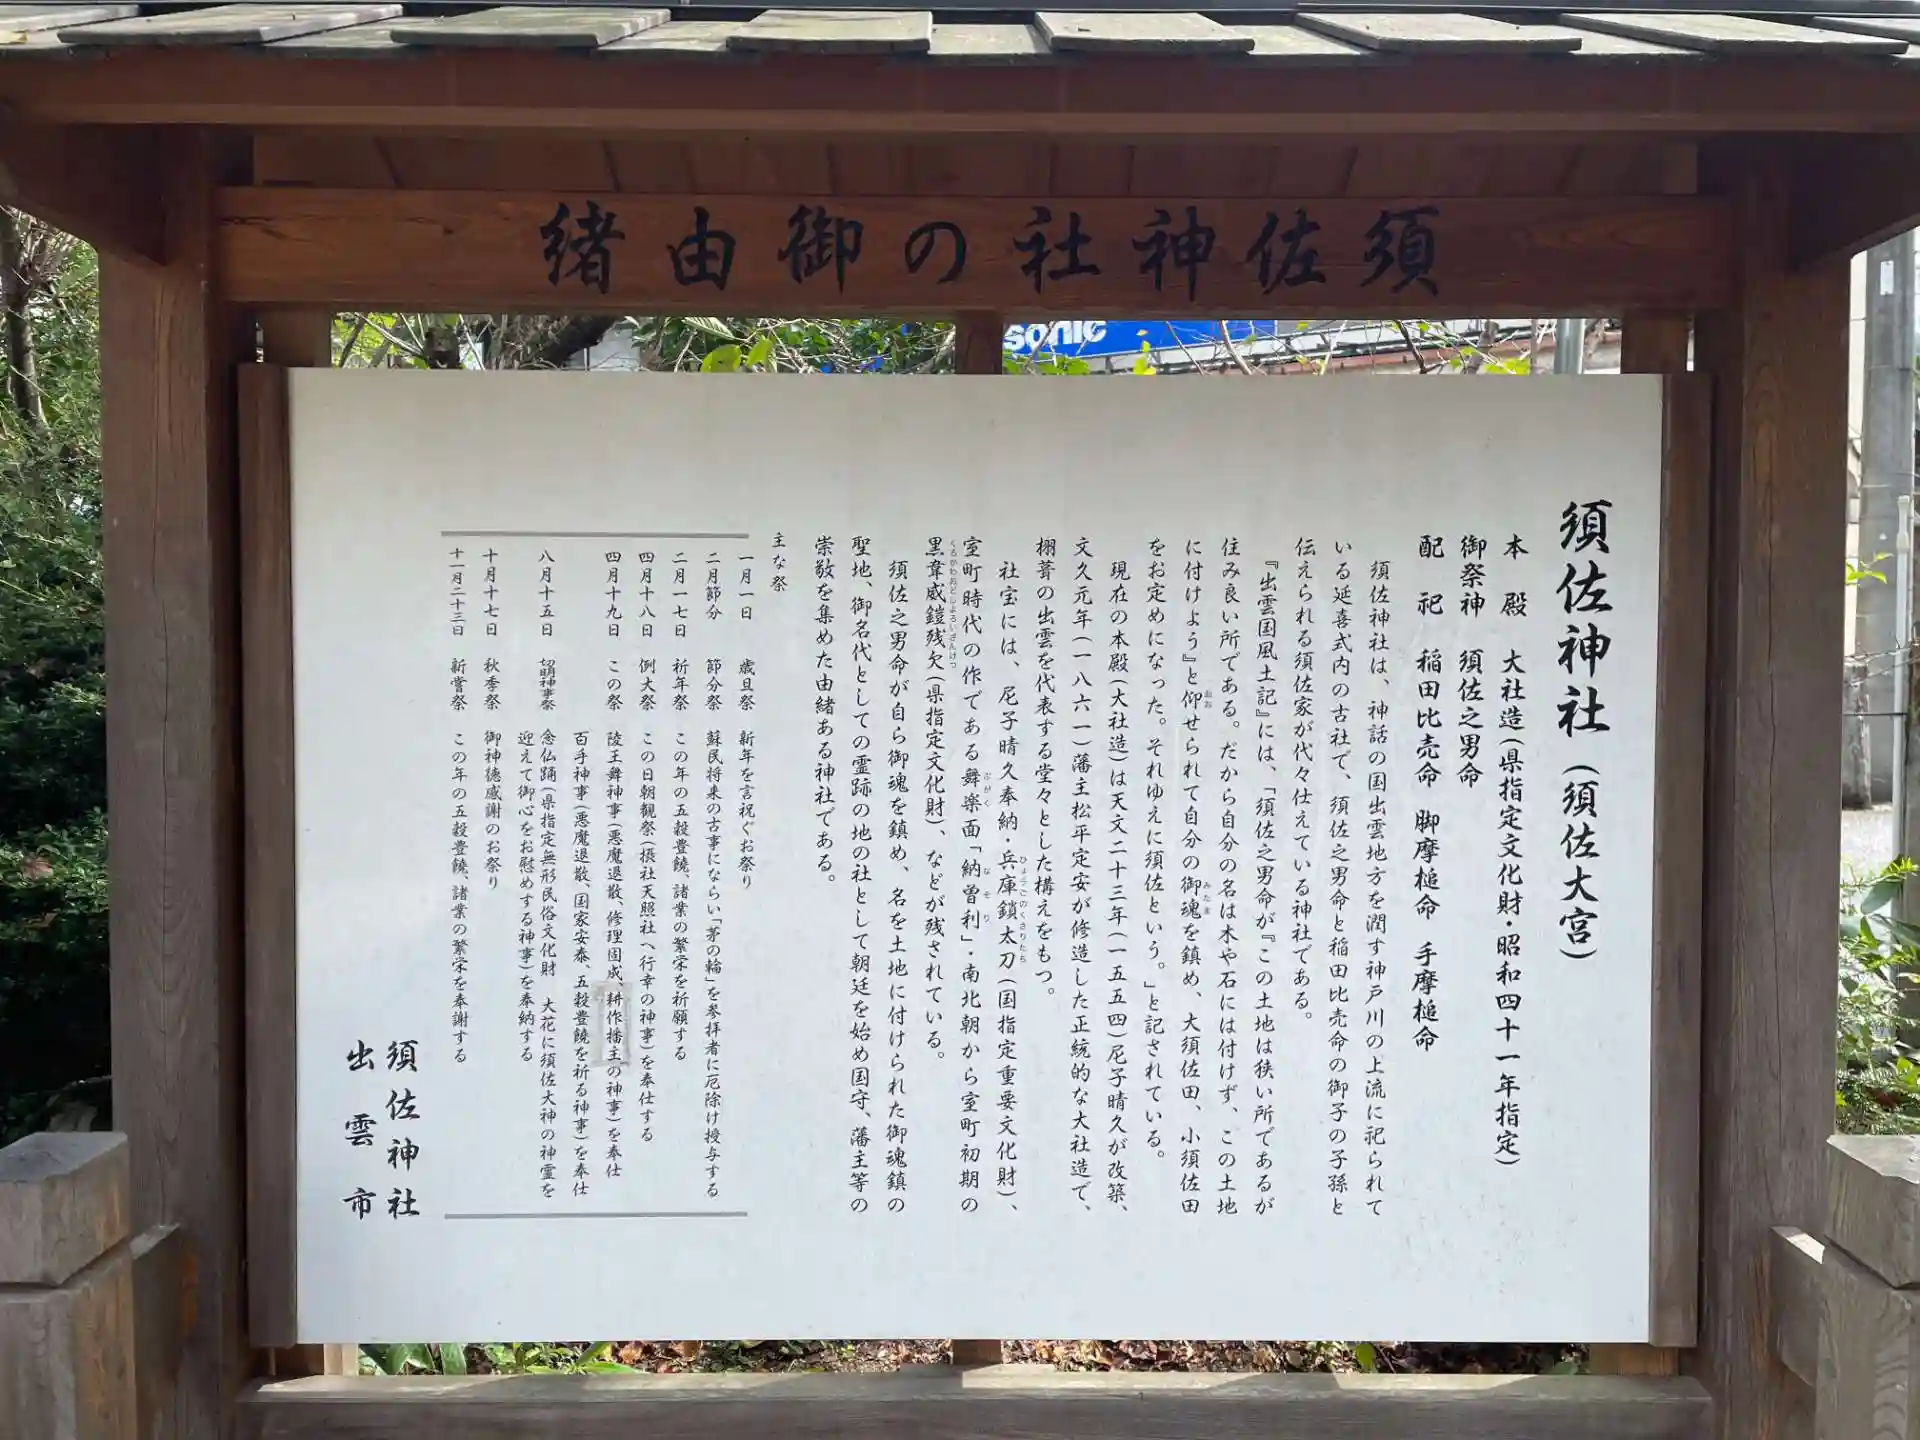 須佐神社の御由緒
sonic
須佐神社（須佐大宮）
本殿　大社造（県指定文化財・昭和四十一年指定）
御祭神　須佐之男命
配祀　稲田比売命　脚摩槌命　手摩槌命
須佐神社は、神話の国出雲地方を潤す神戸川の上流に祀られて
いる延喜式内の古社で、須佐之男命と稲田比売命の御子の子孫と
伝えられる須佐家が代々仕えている神社である。
『出雲国風土記』には、「須佐之男命が『この土地は狭い所であるが
住み良い所である。だから自分の名は木や石には付けず、この土地
に付けよう』と仰せられて自分の御魂を鎮め、大須佐田、小須佐田
をお定めになった。それゆえに須佐という。」と記されている。
現在の本殿（大社造）は天文二十三年（一五五四）尼子晴久が改築、
文久元年（一八六一）藩主松平定安が修造した正統的な大社造で、
栩葺の出雲を代表する堂々とした構えをもつ。
社宝には、尼子晴久奉納・兵庫鎖太刀（国指定重要文化財）、
室町時代の作である舞楽面「納曽利」・南北朝から室町初期の
黒韋威鎧残欠（県指定文化財）、などが残されている。
須佐之男命が自ら御魂を鎮め、名を土地に付けられた御魂鎮の
聖地、御名代としての霊跡の地の社として朝廷を始め国守、藩主等の
崇敬を集めた由緒ある神社である。
主な祭
一月一日　歳旦祭　新年を言祝ぐお祭り
二月節分　節分祭　蘇民将来の古事にならい「茅の輪」を参拝者に厄除け授与する
二月一七日　祈年祭　この年の五穀豊饒、諸業の繁栄を祈願する
四月十八日　例大祭　この日朝覲祭（摂社天照社へ行幸の神事）を奉仕する
四月十九日　この祭　陵王舞神事（悪魔退散、修理固成、耕作播主の神事）を奉仕
百手神事（悪魔退散、国家安泰、五穀豊饒を祈る神事）を奉仕
八月十五日　切明神事祭　念仏踊（県指定無形民俗文化財　大花に須佐大神の神霊を
迎えて御心をお慰めする神事）を奉納する
十月十七日　秋季祭　御神徳感謝のお祭り
十一月二十三日　新嘗祭　この年の五穀豊饒、諸業の繁栄を奉謝する
須佐神社
出雲市